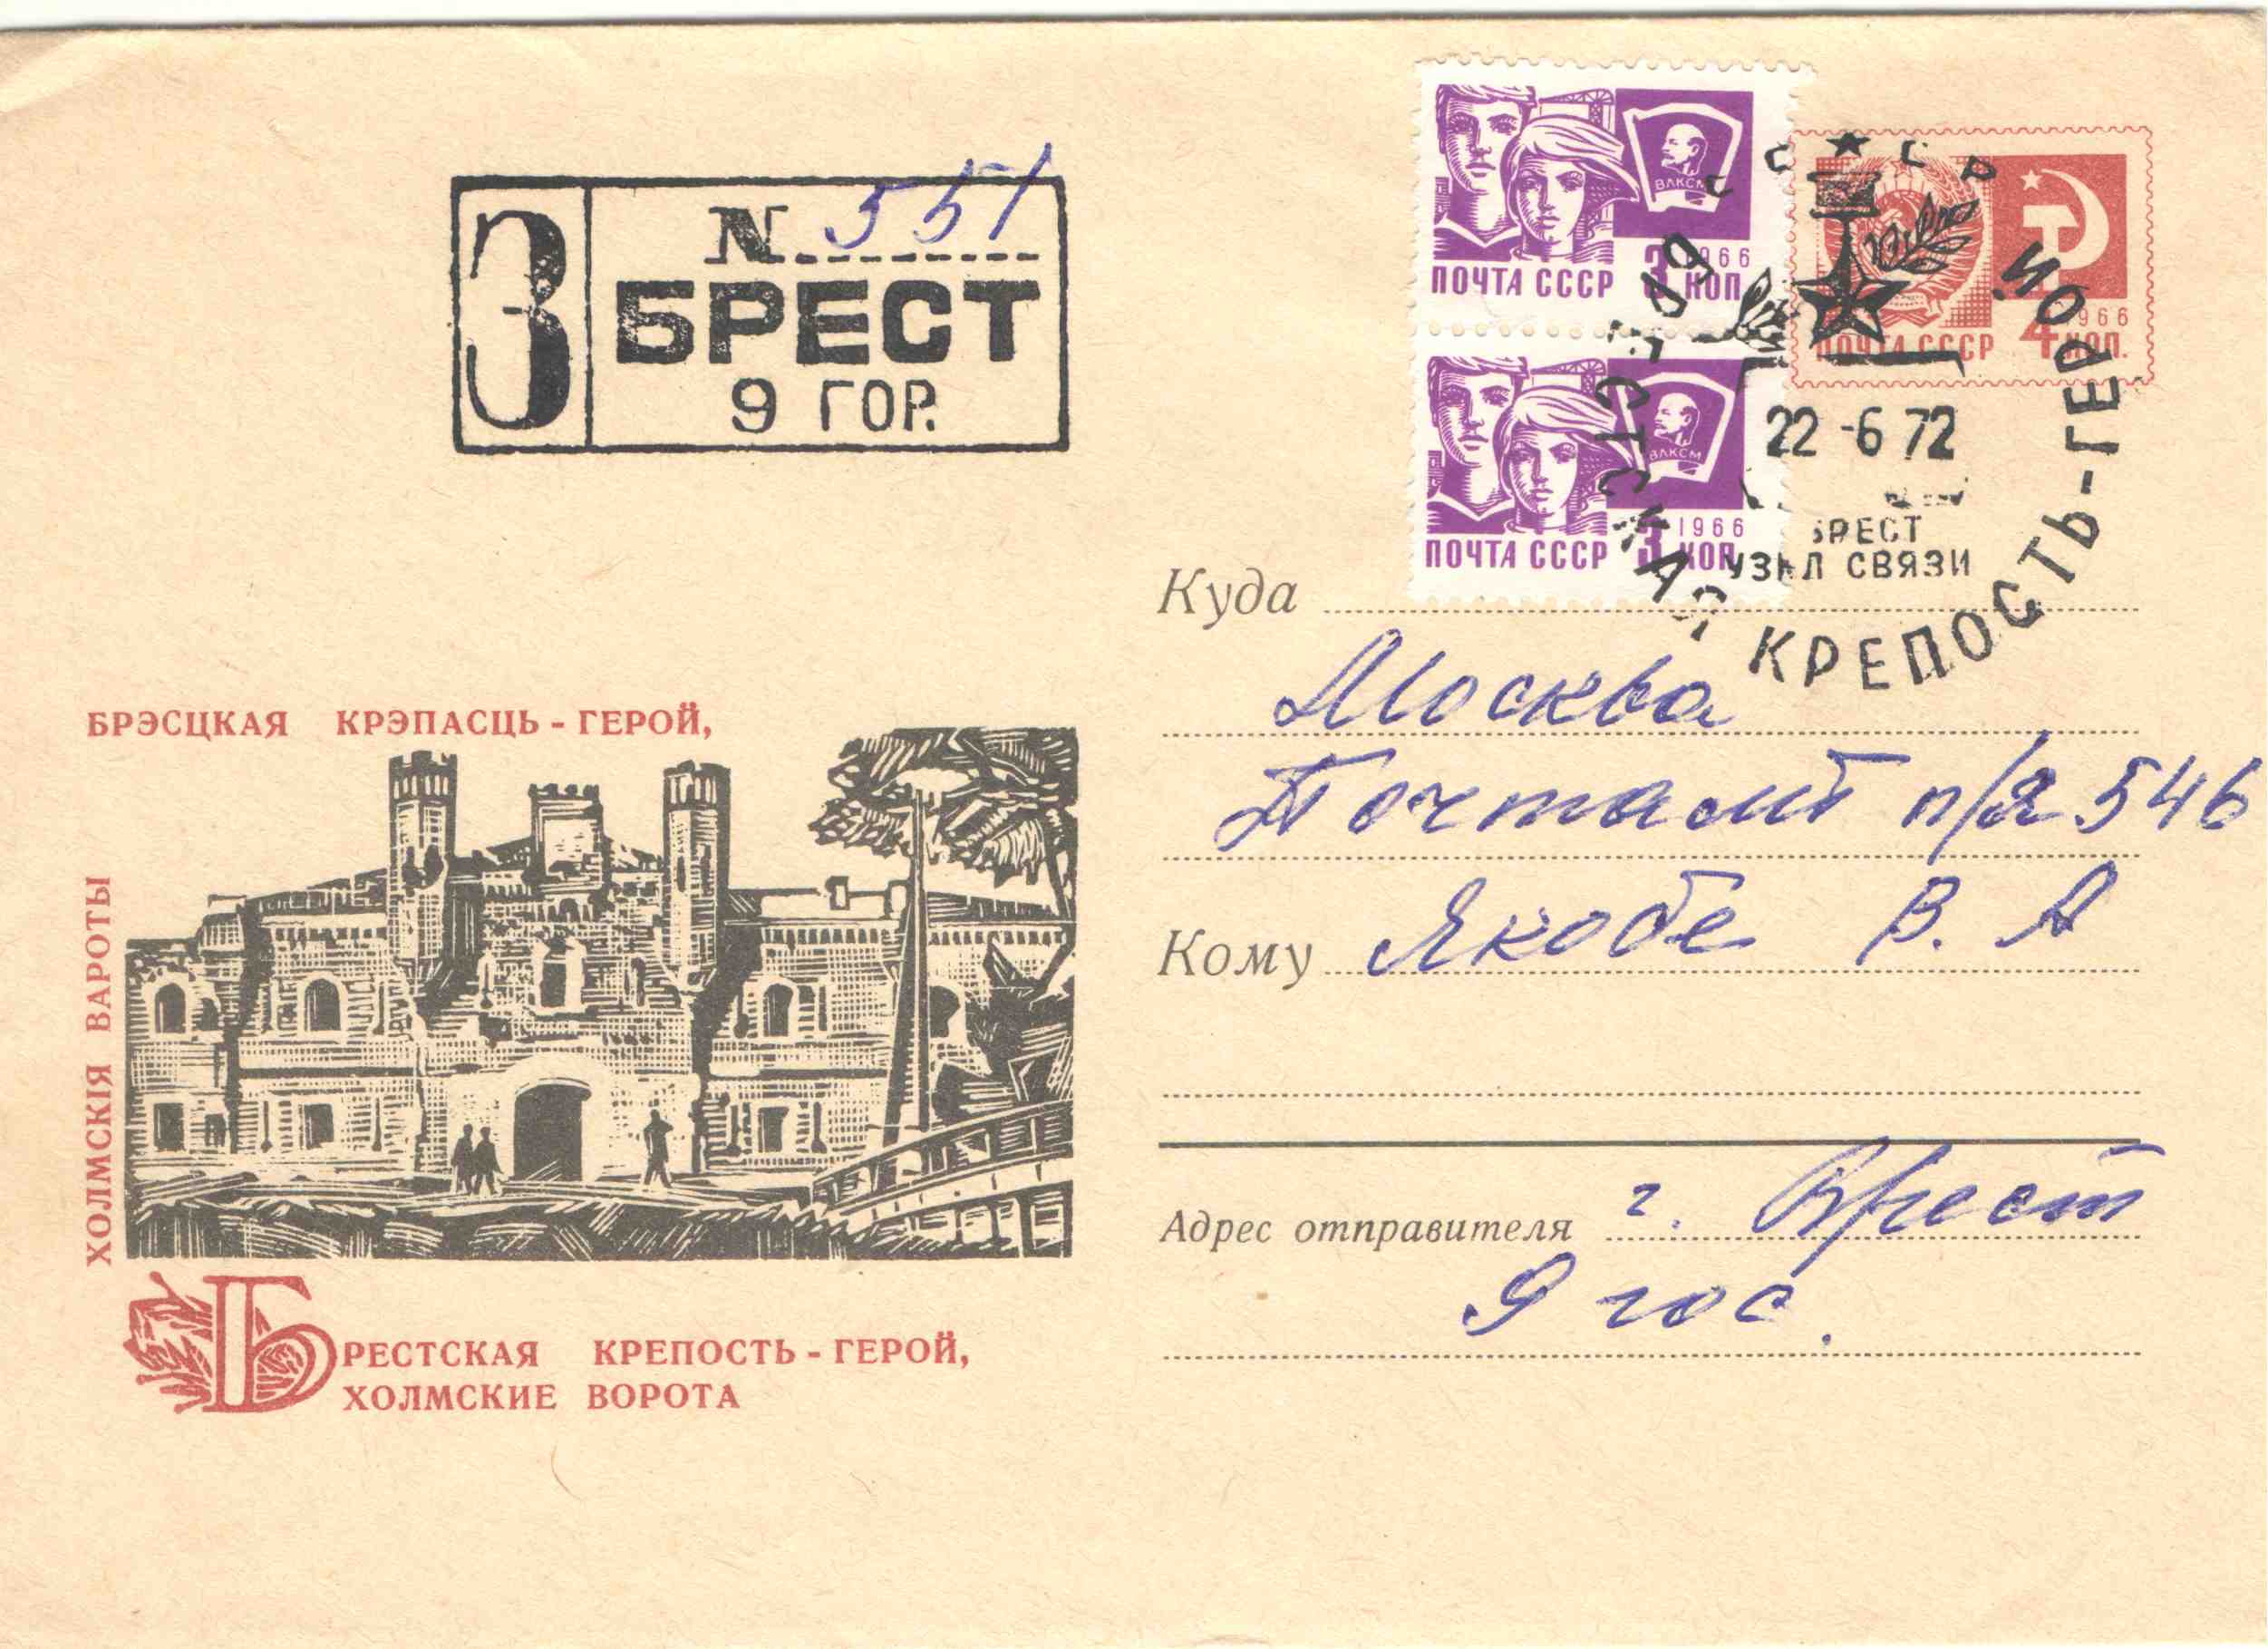 З
№ 551
БРЕСТ
9 ГОР.
ВЛКСМ
1966
ПОЧТА СССР 3 КОП
ВЛКСМ
1966
ПОЧТА СССР 3 КОП.
1966
ПОЧТА СССР 4 КОП.
СССР
БРЕСТСКАЯ КРЕПОСТЬ-ГЕРОЙ.
22 -6 72
БРЕСТ
УЗЕЛ СВЯЗИ
Куда
Москва
Почтамт п/я 546
Кому Якобе В. А
Адрес отправителя г. Брест
БРЭСЦКАЯ КРЭПАСЦЬ - ГЕРОЙ,
ХОЛМСКІЯ ВАРОТЫ
БРЕСТСКАЯ КРЕПОСТЬ - ГЕРОЙ,
ХОЛМСКИЕ ВОРОТА